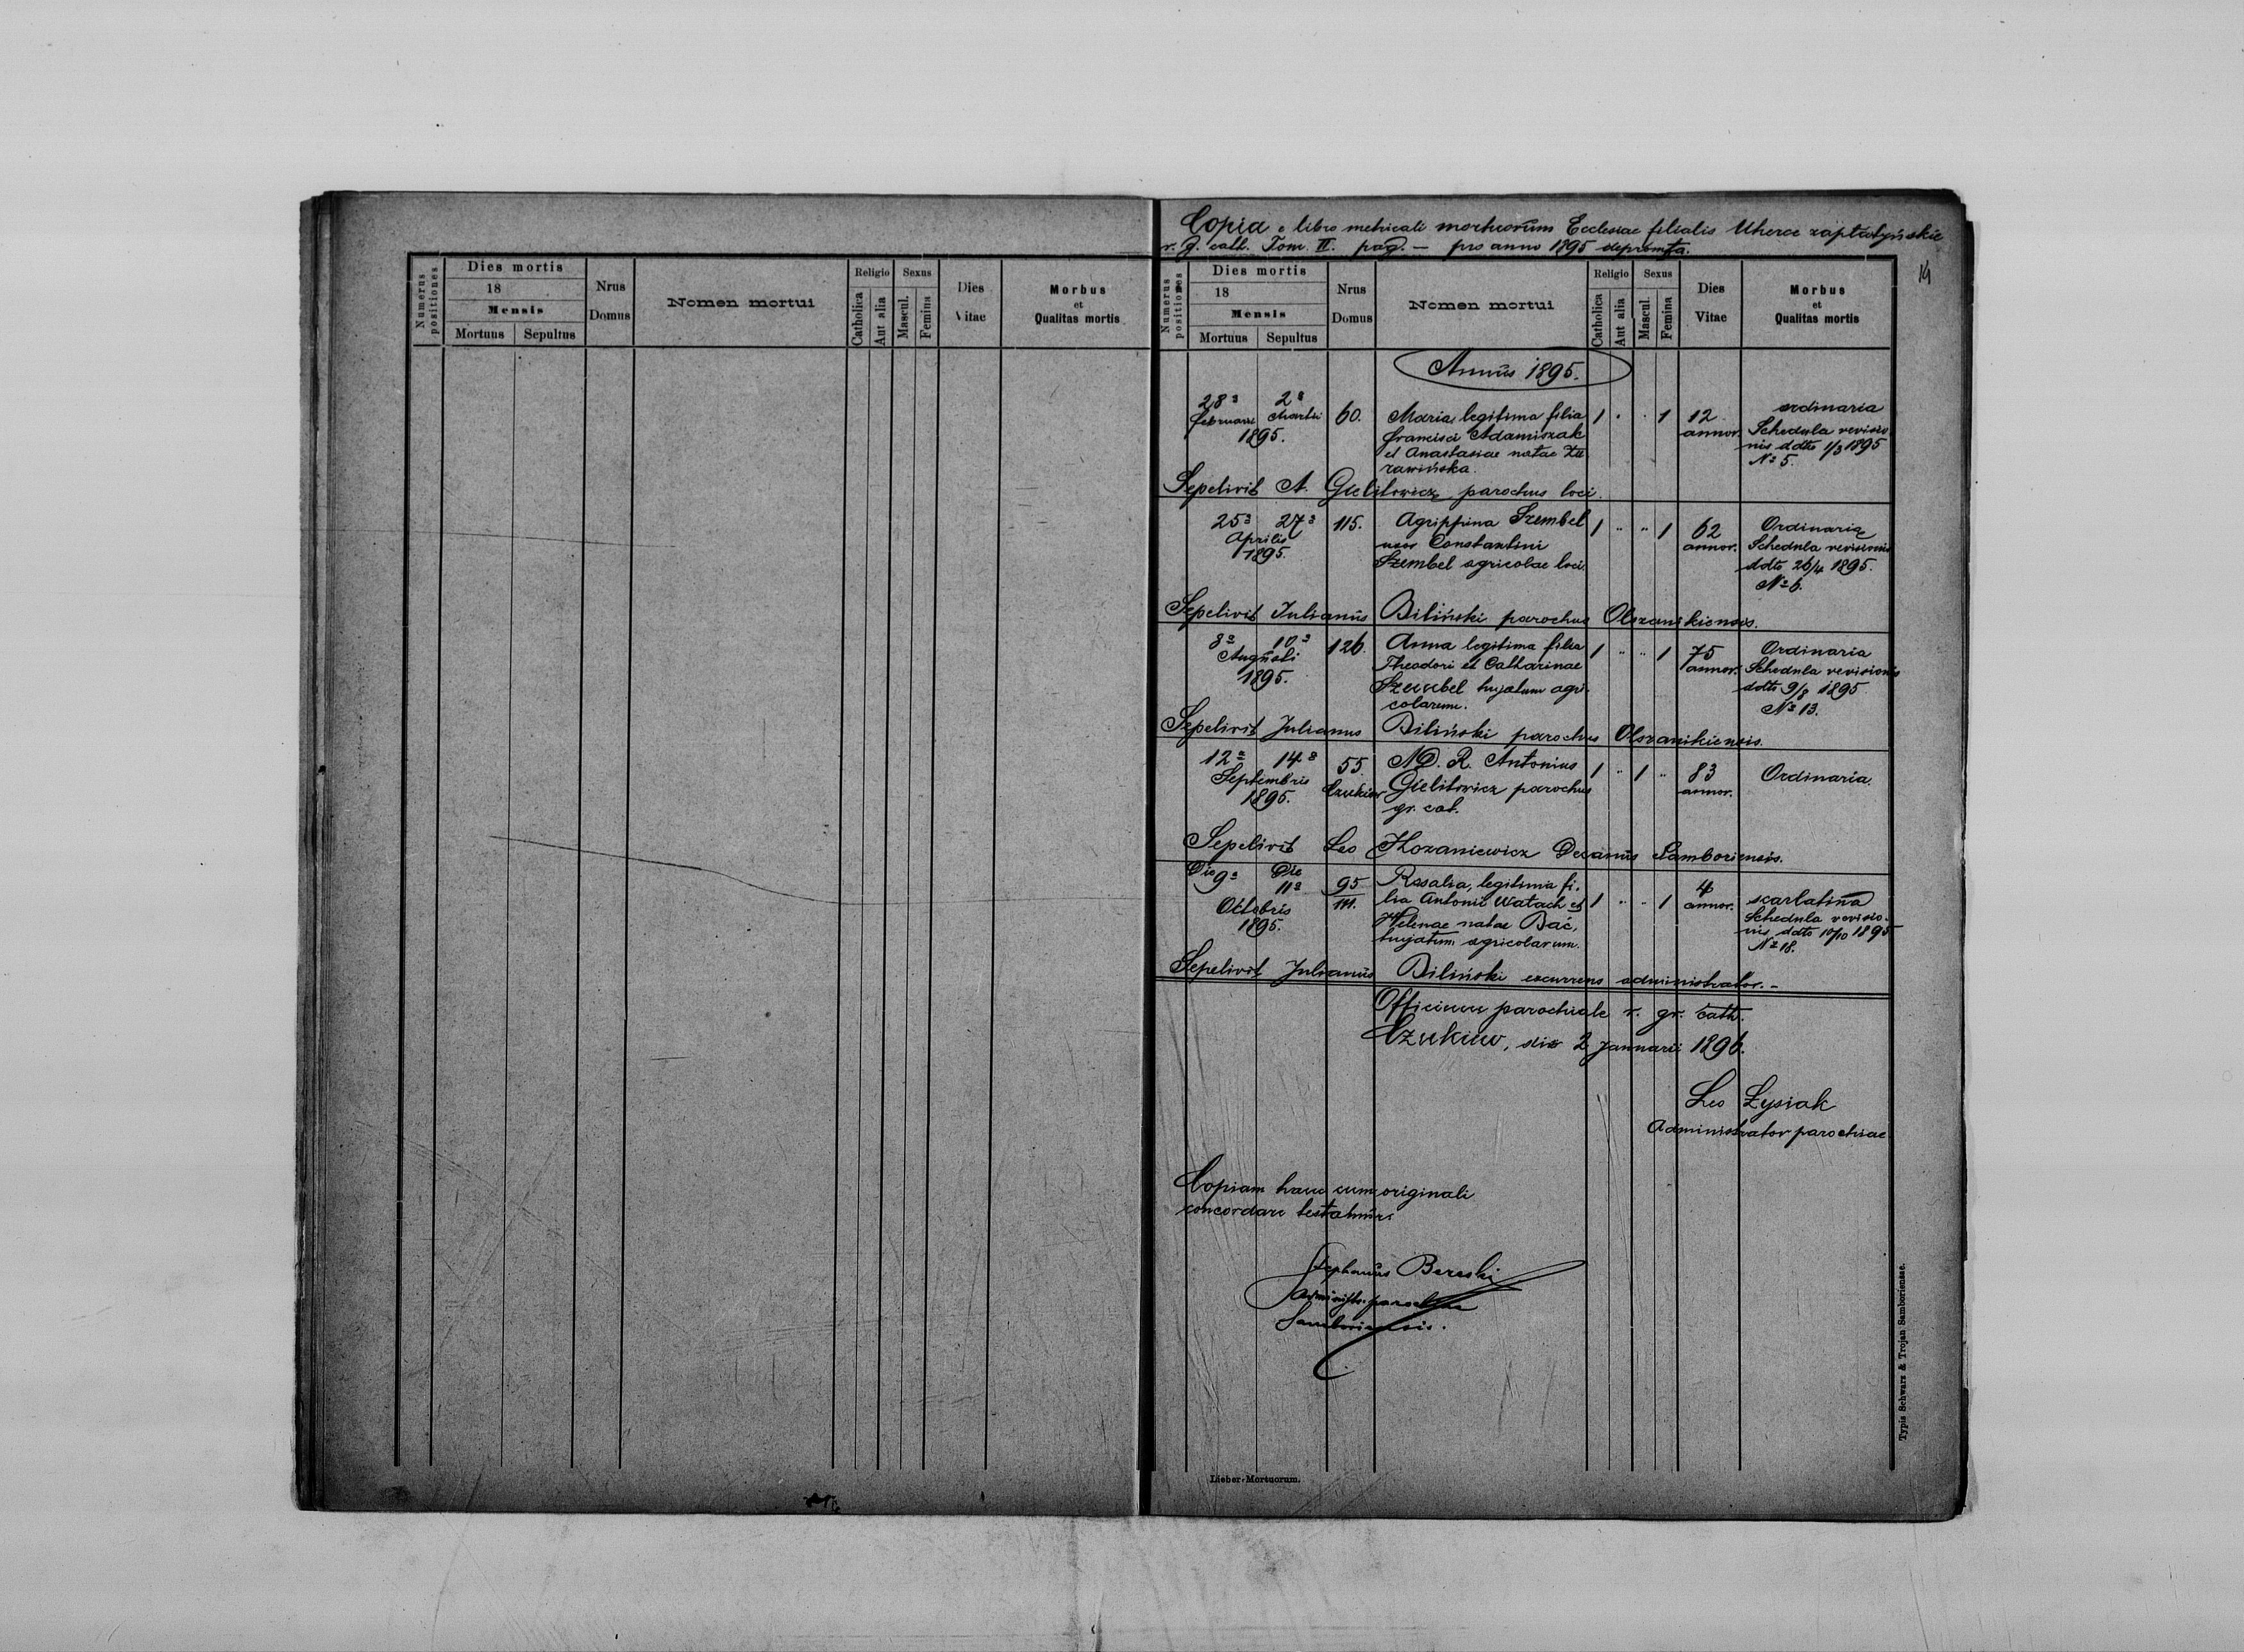 Numerus positiones
Dies mortis
18
Mensis
Mortuus Sepultus
Nrus Domus
Nomen mortui
Religio
Catholica
Aut alia
Sexus
Mascul.
Femina
Dies Vitae
Morbus
et
Qualitas mortis
Copia e libro metricali mortuorum Ecclesiae filialis Uherce zapłatyńskie
r. g. cath. Tom. II. pag. — pro anno 1895 deprompta.
14
Numerus positiones
Dies mortis
18
Mensis
Mortuus Sepultus
Nrus Domus
Nomen mortui
Religio
Catholica
Aut alia
Sexus
Mascul.
Femina
Dies Vitae
Morbus
et
Qualitas mortis
Annus 1895.
28a 2a 60. Maria, legitima filia 1 1 12 ordinaria
Februarii Martii Francisci Adamiszak annor. Schedula revisio
1895. et Anastasiae natae nis ddto 1/3 1895
rawińska. No 5.
Sepelivit A. Gielitowicz parochus loci.
25a 27a 115. Agrippina Szembel 1 " " 1 62 Ordinaria
Aprilis uxor Constantini annor. Schedula revisionis
1895. Szembel agricolae loci. ddto 26/4 1895.
No 6.
Sepelivit Julianus Biliński parochus Olszanikiensis.
8a 10a 126. Anna legitima filia 1 " " 1 75 Ordinaria
Augusti Theodori et Catharinae annor. Schedula revisionis
1895. Szembel hujatum agri- ddto 9/8 1895
colarum. No 13.
Sepelivit Julianus Biliński parochus Olszanikiensis.
12a 14a 55. A. R. Antonius 1 " 1 " 83 Ordinaria.
Septembris Czukiew Gielitowicz parochus annor.
1895. gr. cat.
Sepelivit Leo Kozaniewicz Decanus Samboriensis.
Die 9a Die 11a 95 Rosalia, legitima fi- 1 " " 1 4 scarlatina
Octobris 111. lia Antonii Watach et annor. Schedula revisio-
1895. Helenae natae Bać, nis ddto 10/10 1895
hujatum agricolarum. No 18.
Sepelivit Julianus Biliński excurrens administrator. -
Officium parochiale r. gr. cath.
Czukiew, die 2 Januarii 1896.
Leo Łysiak
Administrator parochiae
Copiam hanc cum originali
concordare testatmur.
Stephanus Bereski
administr. parochiae
Samboriensis.
Lieber-Mortuorum.
Typis Schwarz & Trojan Samboriensae.